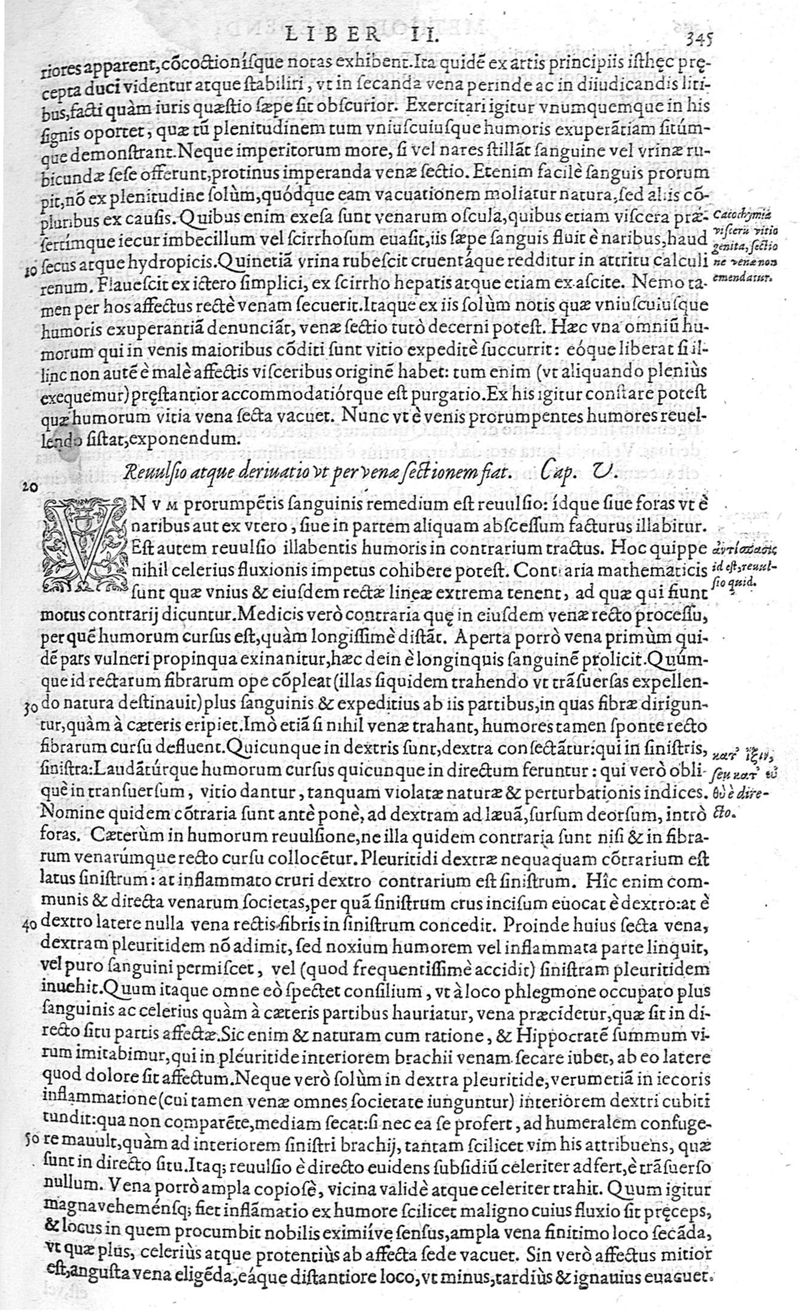 LIBER II. 345
riores apparent, cõcoctionísque notas exhibent. Ita quidẽ ex artis principiis isthęc pręcepta
cepta duci videntur atque stabiliri, vt in secanda vena perinde ac in diiudicandis liti-
bus, facti quàm iuris quæstio sæpe sit obscurior. Exercitari igitur vnumquemque in his
signis oportet, quæ tũ plenitudinem tum vniuscuiusque humoris exuperãtiam sitúm-
que demonstrant. Neque imperitorum more, si vel nares stillãt sanguine vel vrinæ ru-
bicundæ sese offerunt, protinus imperanda venæ sectio. Etenim facilè sanguis prorum
pit, nõ ex plenitudine solùm, quódque eam vacuationem moliatur natura, sed aliis cõ-
pluribus ex causis. Quibus enim exesa sunt venarum oscula, quibus etiam viscera præ-
sertímque iecur imbecillum vel scirrhosum euasit, iis sæpe sanguis fluit è naribus, haud
secus atque hydropicis. Quinetiã vrina rubescit cruentáque redditur in attritu calculi
renum. Flauescit ex ictero simplici, ex scirrho hepatis atque etiam ex ascite. Nemo ta-
men per hos affectus rectè venam secuerit. Itaque ex iis solùm notis quæ vniuscuiusque
humoris exuperantiã denunciãt, venæ sectio tutò decerni potest. Hæc vna omniũ hu-
morum qui in venis maioribus cõditi sunt vitio expeditè succurrit: eóque liberat si il-
linc non autẽ è malè affectis visceribus originẽ habet: tum enim (vt aliquando pleniùs
exequemur) pręstantior accommodatiórque est purgatio. Ex his igitur constare potest
quæ humorum vitia vena secta vacuet. Nunc vt è venis prorumpentes humores reuel-
lendo sistat, exponendum.
Cacochymia
viscerũ vitio
genita, sectio
ne venæ non
emendatur.
10
Reuulsio atque deriuatio vt per venæ sectionem fiat. Cap. V.
20
VNVM prorumpẽtis sanguinis remedium est reuulsio: ídque siue foras vt è
naribus aut ex vtero, siue in partem aliquam abscessum facturus illabitur.
Est autem reuulsio illabentis humoris in contrarium tractus. Hoc quippe
nihil celerius fluxionis impetus cohibere potest. Contraria mathematicis
sunt quæ vnius & eiusdem rectæ lineæ extrema tenent, ad quæ qui fiunt
motus contrarij dicuntur. Medicis verò contraria quę in eiusdem venæ recto processu,
per quẽ humorum cursus est, quàm longissimè distãt. Aperta porrò vena primùm qui-
dẽ pars vulneri propinqua exinanitur, hæc dein è longinquis sanguinẽ prolicit. Quúm-
que id rectarum fibrarum ope cõpleat (illas siquidem trahendo vt trãsuersas expellen-
do natura destinauit) plus sanguinis & expeditius ab iis partibus, in quas fibræ dirigun-
tur, quàm à cæteris eripiet. Imò etiã si nihil venæ trahant, humores tamen sponte recto
fibrarum cursu defluent. Quicunque in dextris sunt, dextra consectãtur: qui in sinistris,
sinistra: Laudãtúrque humorum cursus quicunque in directum feruntur: qui verò obli-
què in transuersum, vitio dantur, tanquam violatæ naturæ & perturbationis indices.
Nomine quidem cõtraria sunt antè ponè, ad dextram ad læuã, sursum deorsum, intrò
foras. Cæterùm in humorum reuulsione, ne illa quidem contraria sunt nisi & in fibra-
rum venarúmque recto cursu collocẽtur. Pleuritidi dextræ nequaquam cõtrarium est
latus sinistrum: at inflammato cruri dextro contrarium est sinistrum. Hîc enim com-
munis & directa venarum societas, per quã sinistrum crus incisum euocat è dextro: at è
dextro latere nulla vena rectis fibris in sinistrum concedit. Proinde huius secta vena,
dextram pleuritidem nõ adimit, sed noxium humorem vel inflammata parte linquit,
vel puro sanguini permiscet, vel (quod frequentissimè accidit) sinistram pleuritidem
inuehit. Quum itaque omne eò spectet consilium, vt à loco phlegmone occupato plus
sanguinis ac celerius quàm à cæteris partibus hauriatur, vena præcidetur, quæ sit in di-
recto situ partis affectæ. Sic enim & naturam cum ratione, & Hippocratẽ summum vi-
rum imitabimur, qui in pleuritide interiorem brachii venam secare iubet, ab eo latere
quod dolore sit affectum. Neque verò solùm in dextra pleuritide, verumetiã in iecoris
inflammatione (cui tamen venæ omnes societate iunguntur) interiorem dextri cubiti
tundit: qua non comparẽte, mediam secat: si nec ea se profert, ad humeralem confuge-
re mauult, quàm ad interiorem sinistri brachij, tantam scilicet vim his attribuens, quæ
sunt in directo situ. Itaq; reuulsio è directo euidens subsidiũ celeriter adfert, è trãsuerso
nullum. Vena porrò ampla copiosè, vicina validè atque celeriter trahit. Quum igitur
magna vehemẽnsq; fiet inflãmatio ex humore scilicet maligno cuius fluxio sit pręceps,
& locus in quem procumbit nobilis eximiíve sensus, ampla vena finitimo loco secãda,
vt quæ plus, celerius atque protentiùs ab affecta sede vacuet. Sin verò affectus mitior
est, angusta vena eligẽda, eáque distantiore loco, vt minus, tardiùs & ignauius euacuet.
ἀντίσπασις
id est, reuul-
sio quid.
30
κατ' ἴξιν,
seu κατ' εὐ
θὺ è dire-
cto.
40
50